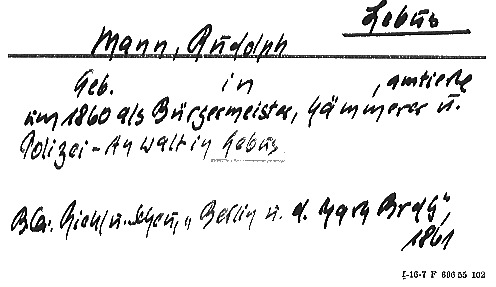 Lebus
Mann, Rudolph
Geb. in , amtierte
um 1860 als Bürgermeister, Kämmerer u.
Polizei-Anwalt in Lebus
Riehl u. Scheu, "Berlin u. d. Mark Brdbg"
1861
I-16-7 F 606 55 102